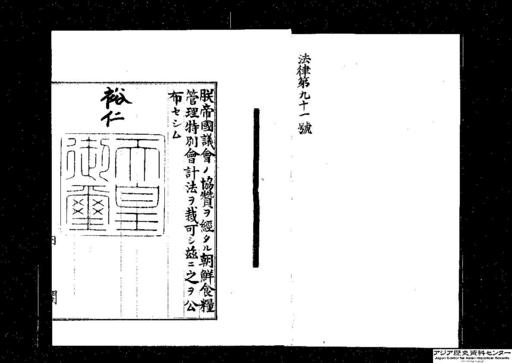 法律第九十一號
朕帝國議會ノ協贊ヲ經タル朝鮮食糧
管理特別會計法ヲ裁可シ茲ニ之ヲ公
布セシム
裕仁
天皇
御璽
内 閣
アジア歴史資料センター
Japan Center for Asian Historical Records